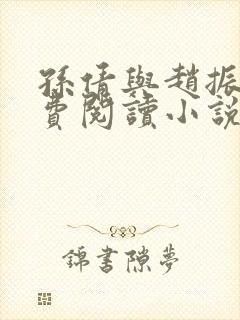 孫倩與趙振
費閱讀小說
錦書隙夢